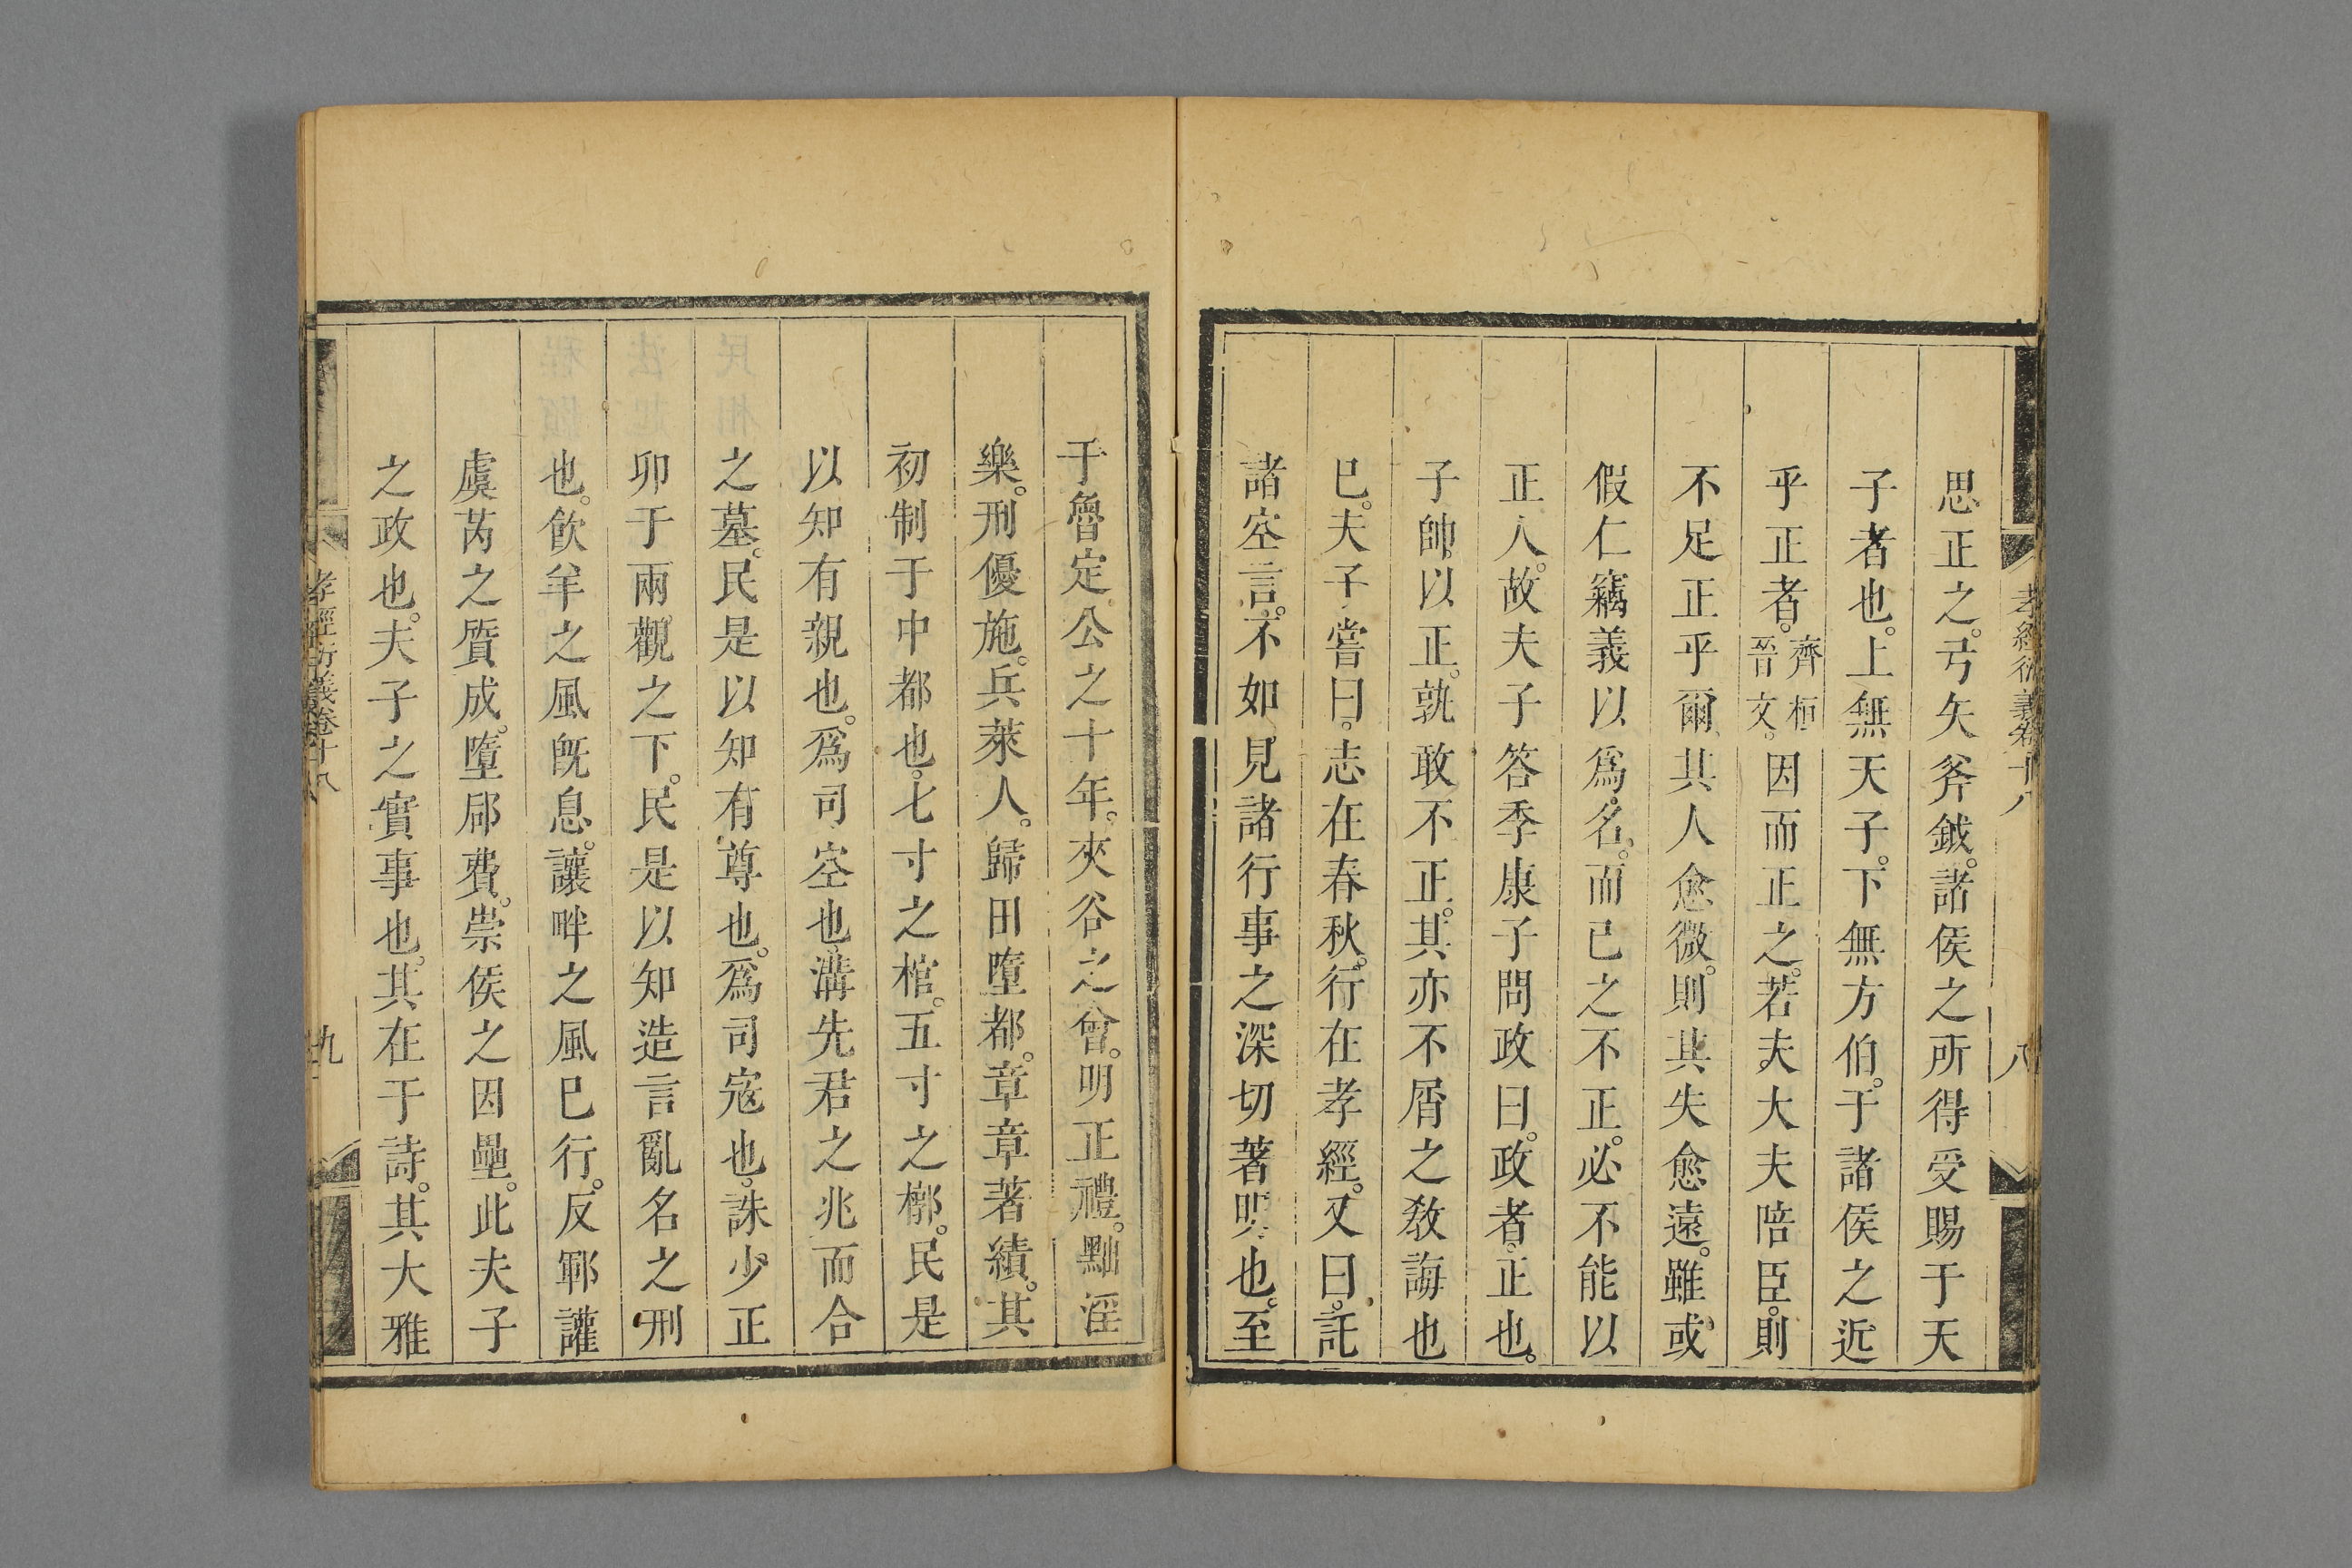 孝經衍義卷十八
八
思正之。弓矢斧鉞。諸侯之所得受賜于天
子者也。上無天子。下無方伯。于諸侯之近
乎正者。齊桓晉文。因而正之。若夫大夫陪臣。則
不足正乎爾。其人愈微。則其失愈遠。雖或
假仁竊義以爲名。而已之不正。必不能以
正人。故夫子答季康子問政曰。政者。正也。
子帥以正。孰敢不正。其亦不屑之教誨也
已。夫子嘗曰。志在春秋。行在孝經。又曰。託
諸空言。不如見諸行事之深切著明也。至
于魯定公之十年。夾谷之會。明正禮。黜淫
樂。刑優施。兵萊人。歸田墮都。章章著績。其
初制于中都也。七寸之棺。五寸之槨。民是
以知有親也。爲司空也。溝先君之兆而合
之墓。民是以知有尊也。爲司寇也。誅少正
卯于兩觀之下。民是以知造言亂名之刑
也。飲羊之風旣息。讓畔之風已行。反鄆讙
虞芮之質成。墮郈費。崇侯之因壘。此夫子
之政也。夫子之實事也。其在于詩。其大雅
孝經衍義卷十八
九